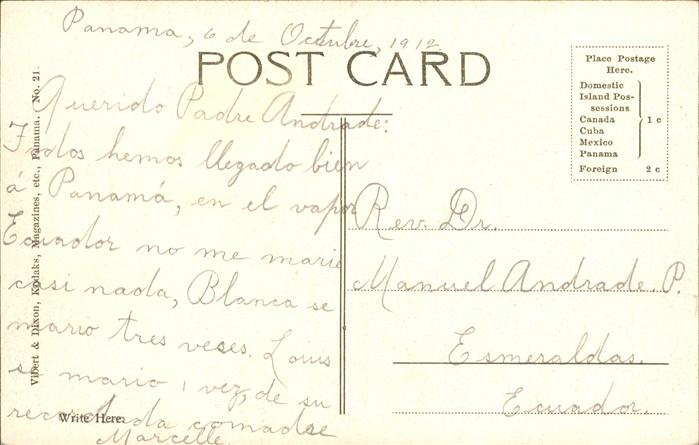 Panama, 6 de Octubre, 1912
POST CARD
Querido Padre Andrade:
Todos hemos llegado bien
á Panamá, en el vapor
Ecuador no me marie
casi nada, Blanca se
mario tres veses. Louis
se mario 1 vez, de su
recordada comadre
Marcelle.
Write Here.
Vibert & Dixon, Kodaks, Magazines, etc., Panama. No. 21.
Place Postage
Here.
Domestic
Island Pos-
sessions
Canada
Cuba
Mexico
Panama
1 c
Foreign 2 c
Rev. Dr.
Manuel Andrade. P.
Esmeraldas.
Ecuador.